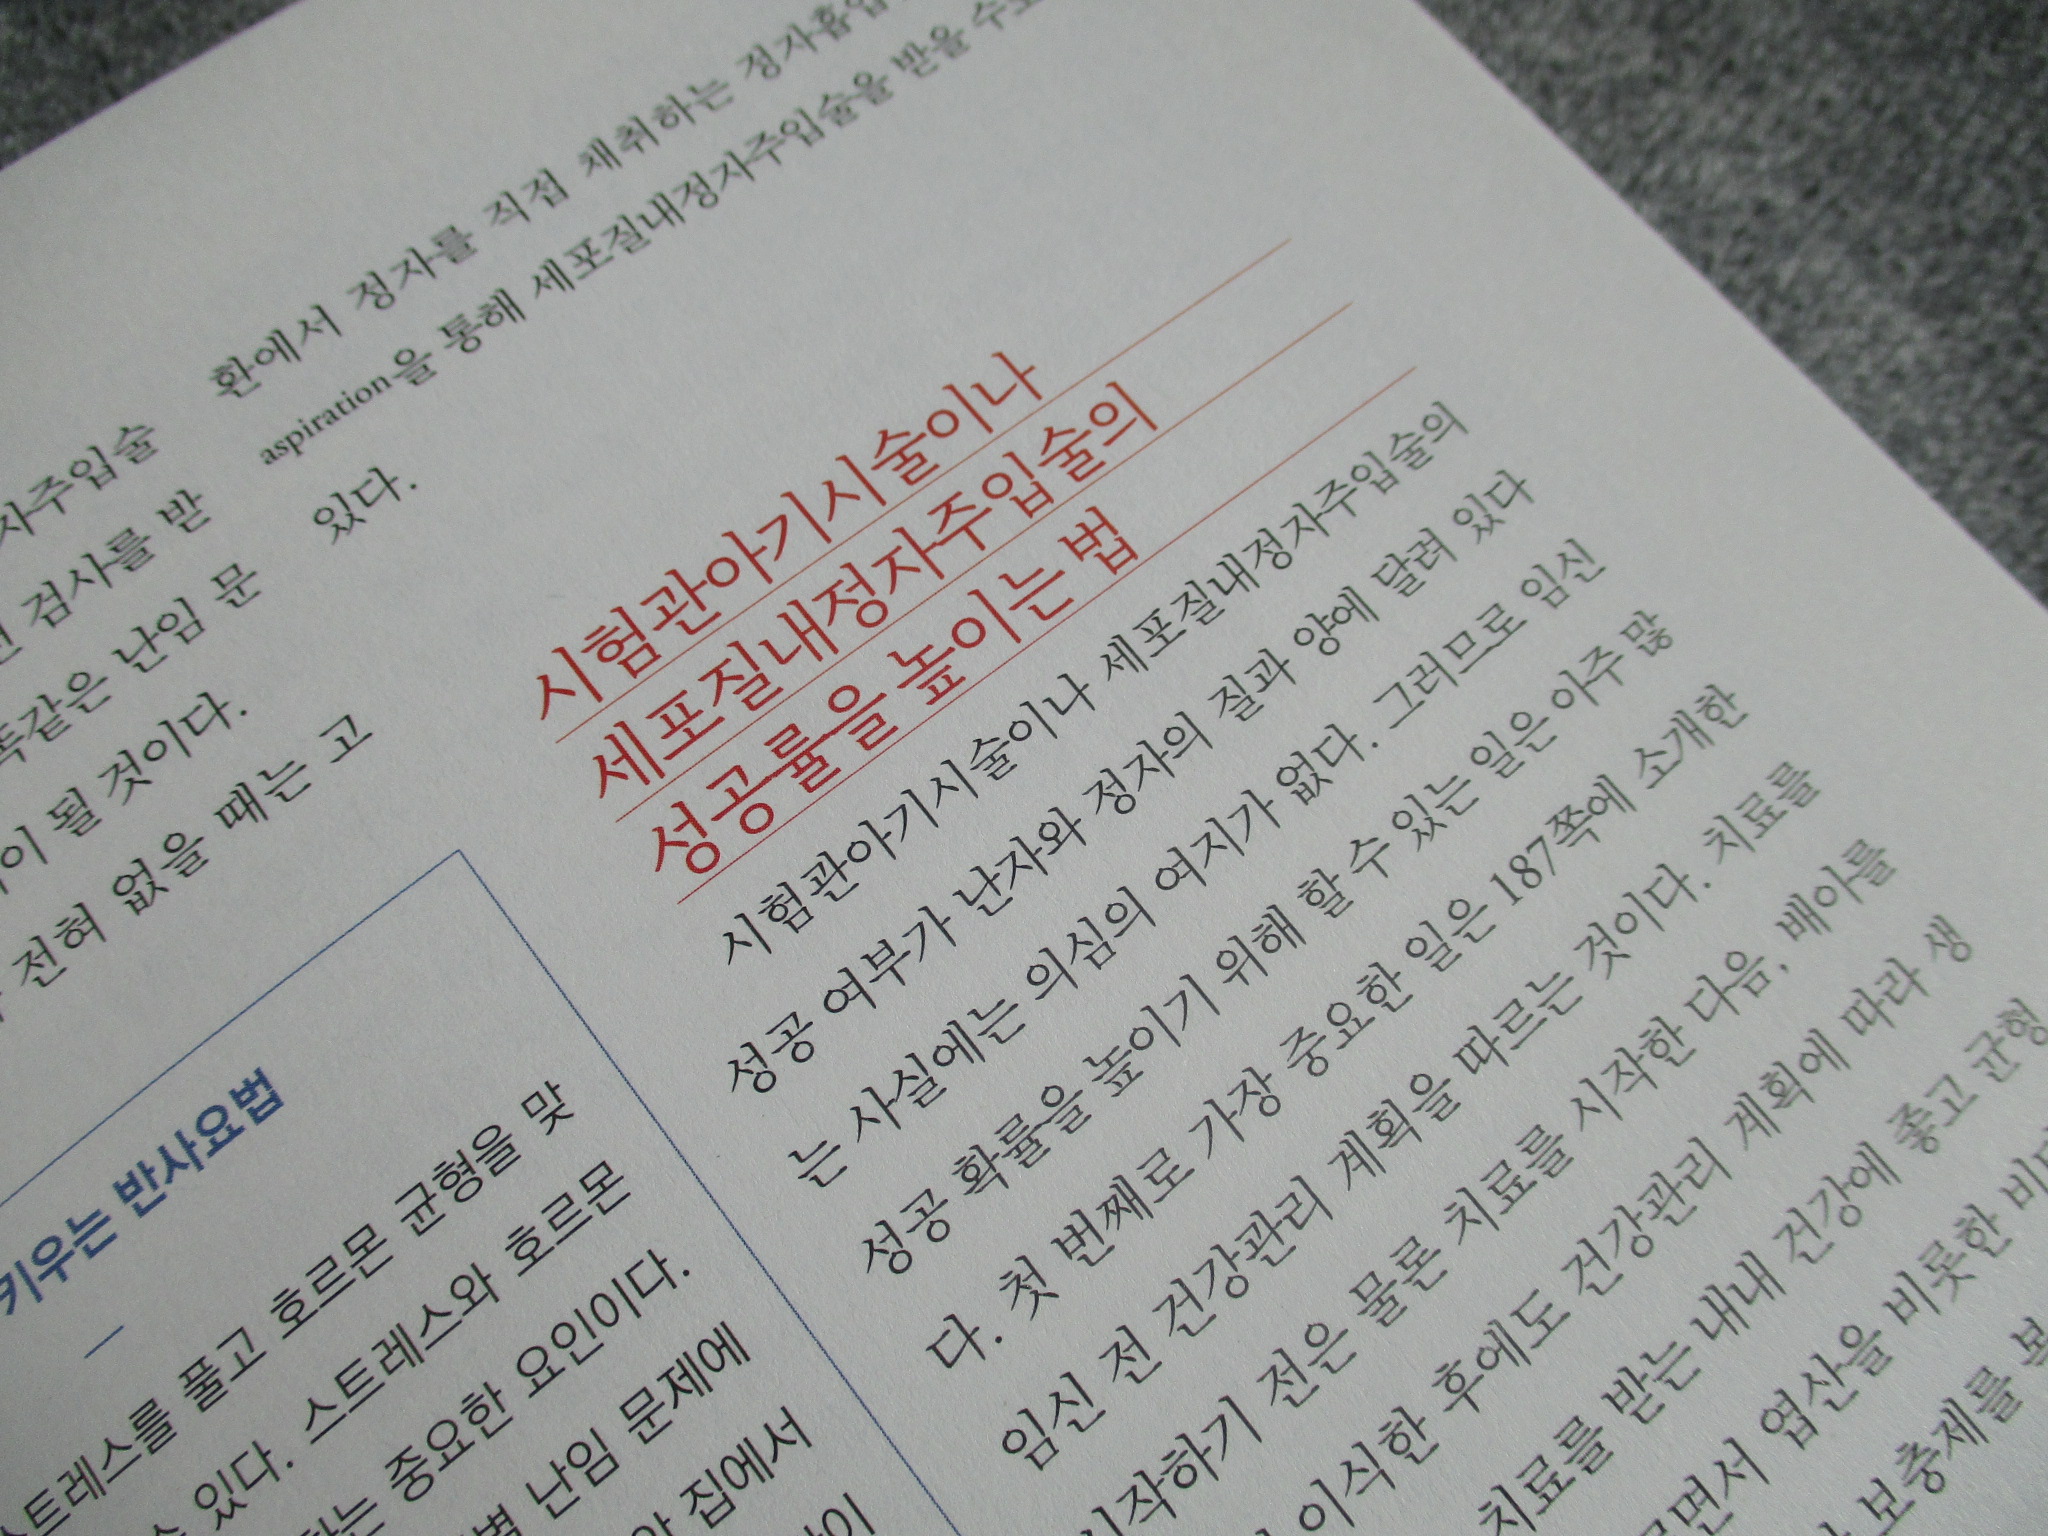 자주입술
검사를 받
똑같은 난임 문
이 될 것이다.
전혀 없을 때는 고
키우는 반사요법
스트레스를 풀고 호르몬 균형을 맞
있다. 스트레스와 호르몬
는 중요한 요인이다.
난임 문제에
집에서
환에서 정자를 직접 채취하는 정자흡입
aspiration을 통해 세포질내정자주입술을 받을 수도
있다.
시험관아기시술이나
세포질내정자주입술의
성공률을 높이는 법
시험관아기시술이나 세포질내정자주입술의
성공 여부가 난자와 정자의 질과 양에 달려 있다
는 사실에는 의심의 여지가 없다. 그러므로 임신
성공 확률을 높이기 위해 할 수 있는 일은 아주 많
다. 첫 번째로 가장 중요한 일은 187쪽에 소개한
임신 전 건강관리 계획을 따르는 것이다. 치료를
시작하기 전은 물론 치료를 시작한 다음, 배아를
이식한 후에도 건강관리 계획에 따라 생
치료를 받는 내내 건강에 좋고 균형
면서 엽산을 비롯한
보충제를